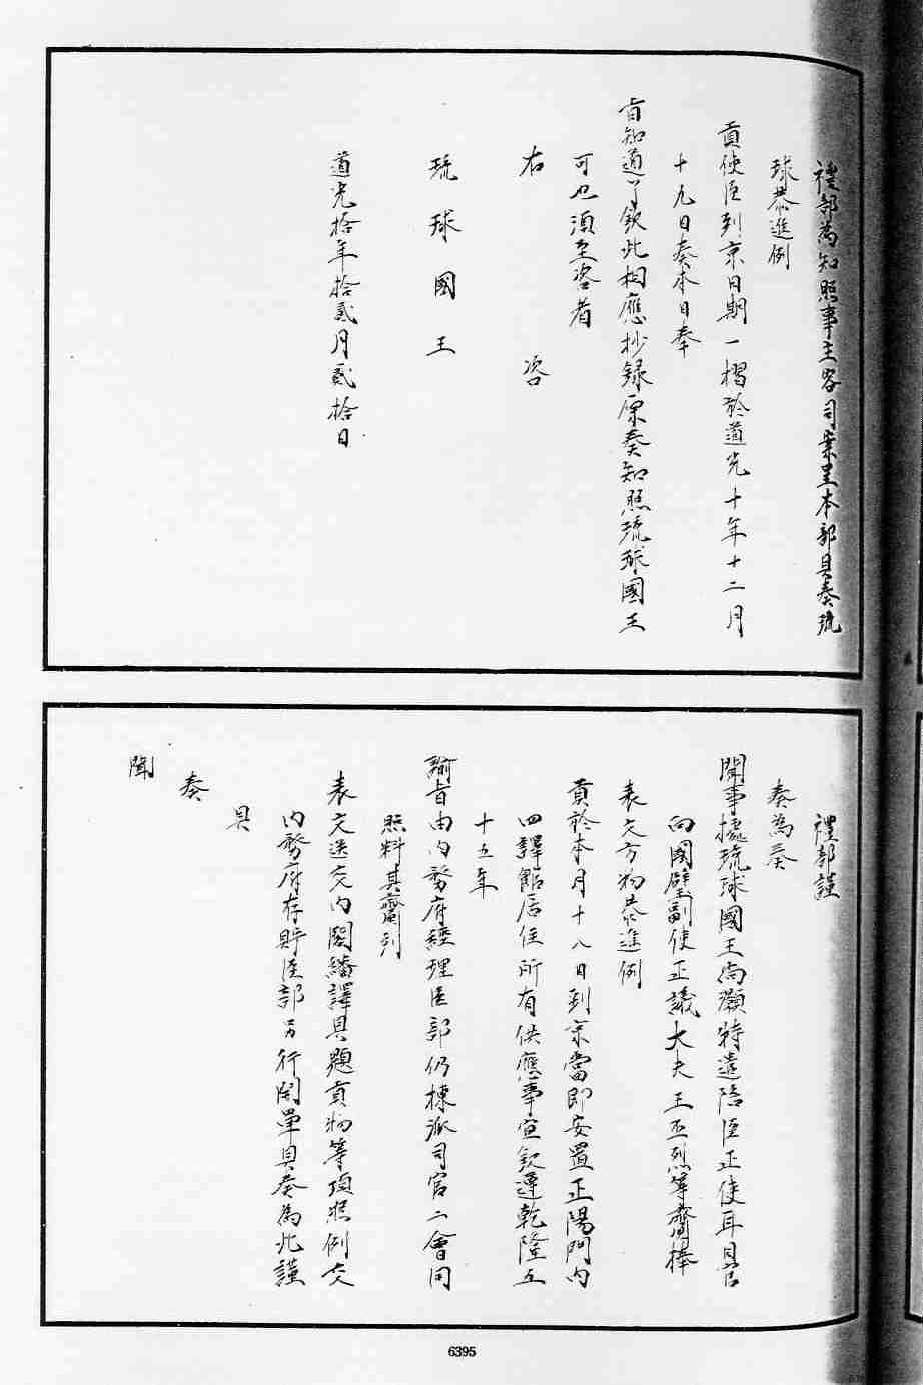 禮部為知照事主客司案呈本部具奏琉
球恭進例
貢使臣到京日期一摺於道光十年十二月
十九日奏本日奉
旨知道了欽此相應抄錄原奏知照琉球國王
可也須至咨者
右咨
琉球國王
道光拾年拾貳月貳拾日
禮部謹
奏為奏
聞事據琉球國王尚灝特遣陪臣正使耳目官
向國璧副使正議大夫王丕烈等齎捧
表文方物恭進例
貢於本月十八日到京當即安置正陽門內
四譯館居住所有供應事宜欽遵乾隆五
十五年
諭旨由內務府經理臣部仍揀派司官二會同
照料其齎到
表文送交內閣繙譯具題貢物等項照例交
內務府存貯臣部另行開單具奏為此謹
具
奏
聞
6395